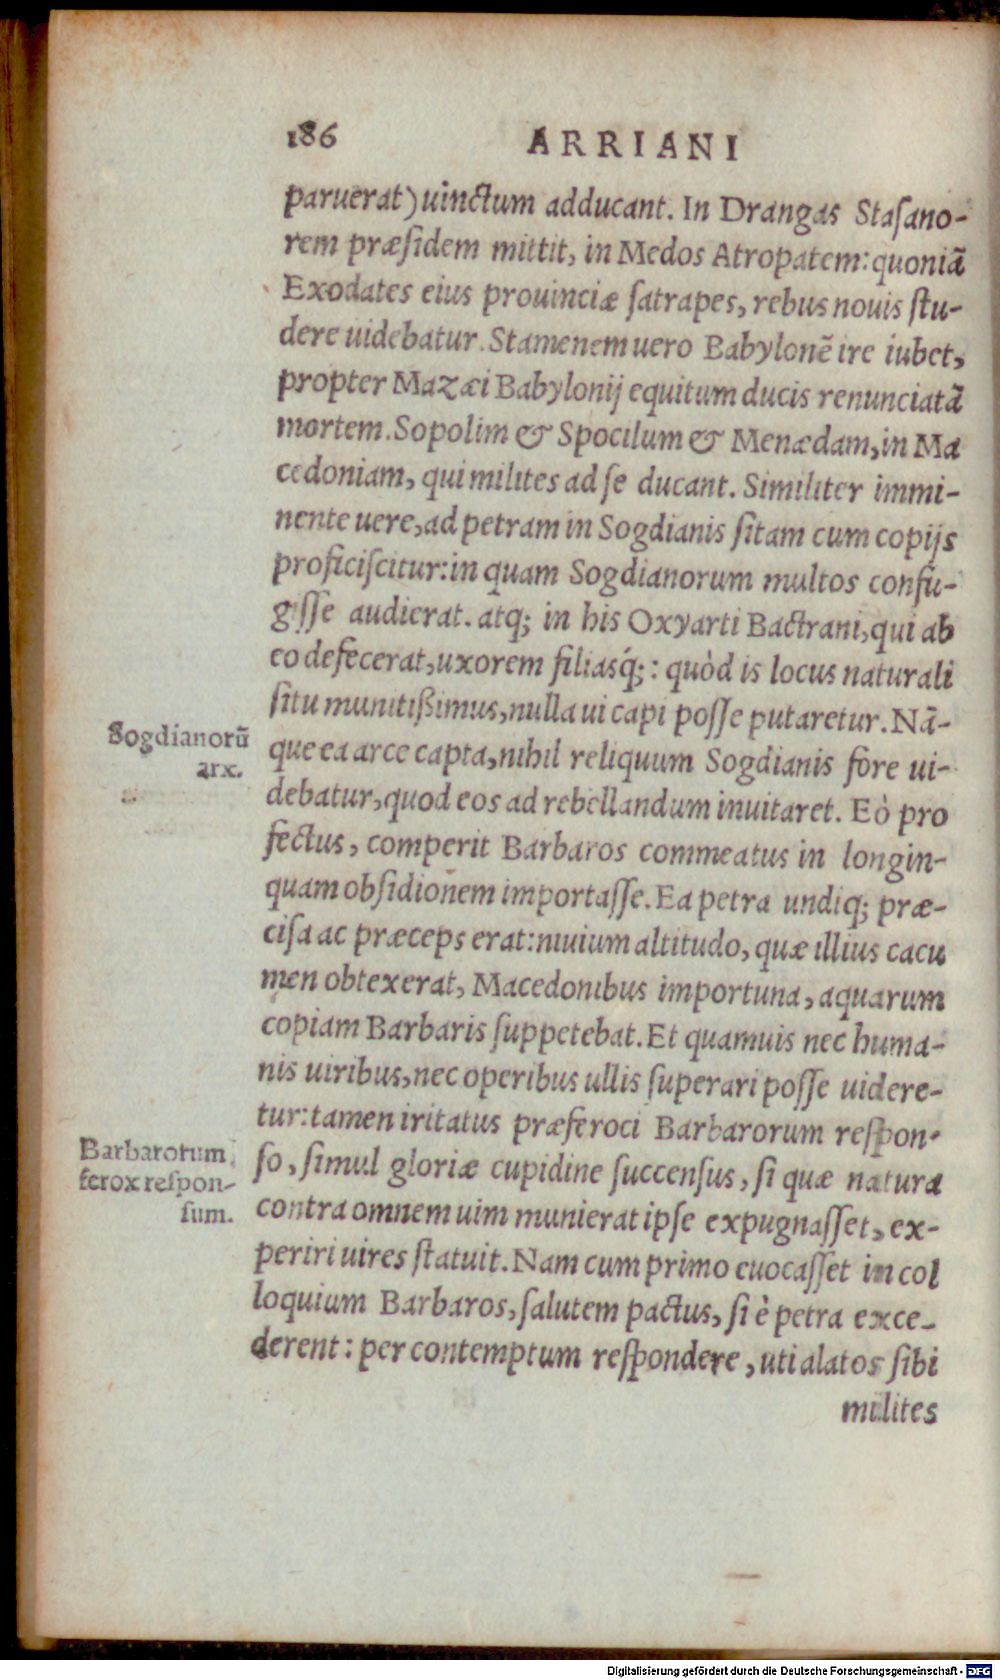 186 ARRIANI
paruerat) uinctum adducant. In Drangas Staſano-
rem præſidem mittit, in Medos Atropatem: quoniã
Exodates eius prouinciæ ſatrapes, rebus nouis ſtu-
dere uidebatur. Stamenem uero Babylonẽ ire iubet,
propter Mazæi Babylonij equitum ducis renunciatã
mortem. Sopolim & Spocilum & Menædam, in Ma
cedoniam, qui milites ad ſe ducant. Similiter immi-
nente uere, ad petram in Sogdianis ſitam cum copijs
proficiſcitur: in quam Sogdianorum multos confu-
giſſe audierat. atq; in his Oxyarti Bactrani, qui ab
eo defecerat, uxorem filiasq́;: quòd is locus naturali
ſitu munitißimus, nulla ui capi poſſe putaretur. Nã-
Sogdianorũ
arx.
que ea arce capta, nihil reliquum Sogdianis fore ui-
debatur, quod eos ad rebellandum inuitaret. Eò pro
fectus, comperit Barbaros commeatus in longin-
quam obſidionem importaſſe. Ea petra undiq; præ-
ciſa ac præceps erat: niuium altitudo, quæ illius cacu
men obtexerat, Macedonibus importuna, aquarum
copiam Barbaris ſuppetebat. Et quamuis nec huma-
nis uiribus, nec operibus ullis ſuperari poſſe uidere-
tur: tamen iritatus præferoci Barbarorum reſpon-
Barbarorum
ferox reſpon-
ſum.
ſo, ſimul gloriæ cupidine ſuccenſus, ſi quæ natura
contra omnem uim munierat ipſe expugnaſſet, ex-
periri uires ſtatuit. Nam cum primo euocaſſet in col
loquium Barbaros, ſalutem pactus, ſi è petra exce-
derent: per contemptum reſpondere, uti alatos ſibi
milites
Digitalisierung gefördert durch die Deutsche Forschungsgemeinschaft - DFG